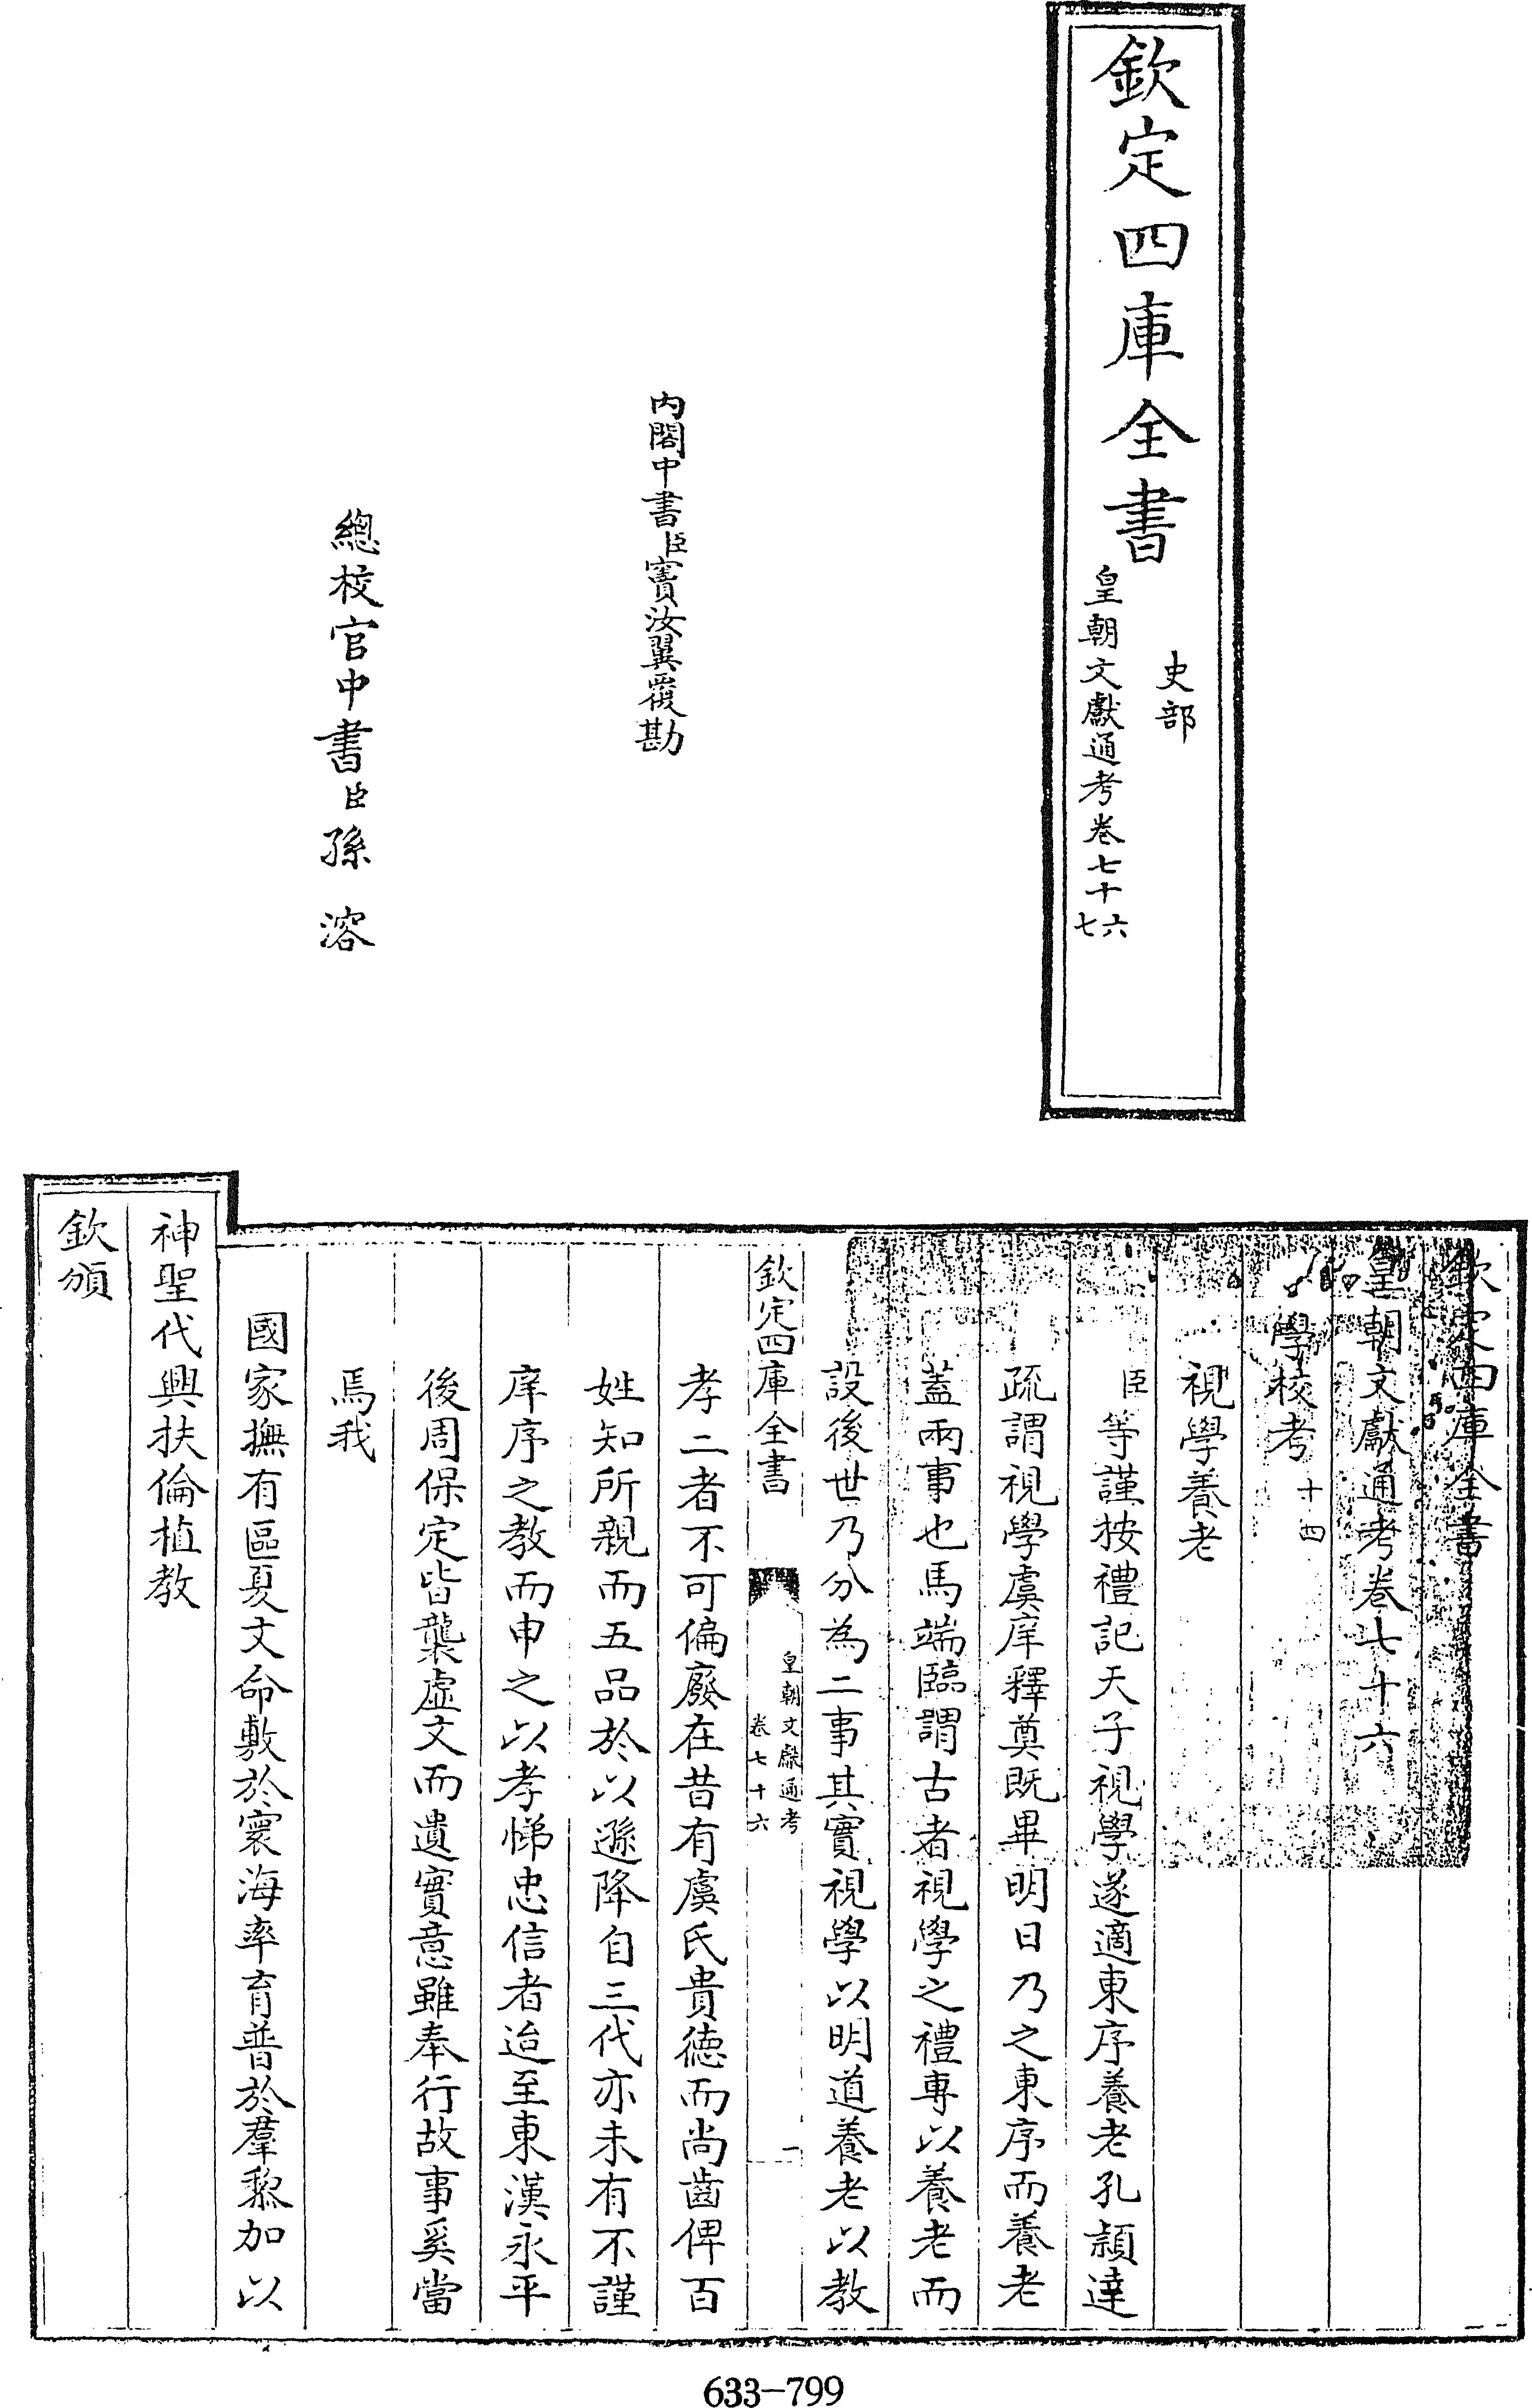 欽定四庫全書
史部
皇朝文獻通考卷七十六
七
內閣中書臣竇汝翼覆勘
總校官中書臣孫溶
欽定四庫全書
皇朝文獻通考卷七十六
學校考十四
視學養老
臣等謹按禮記天子視學遂適東序養老孔穎達
疏謂視學虞庠釋奠既畢明日乃之東序而養老
蓋兩事也馬端臨謂古者視學之禮專以養老而
設後世乃分為二事其實視學以明道養老以教
欽定四庫全書
皇朝文獻通考
卷七十六
一
孝二者不可偏廢在昔有虞氏貴德而尚齒俾百
姓知所親而五品於以遜降自三代亦未有不謹
庠序之教而申之以孝悌忠信者迨至東漢永平
後周保定皆襲虛文而遺實意雖奉行故事奚當
焉我
國家撫有區夏文命敷於寰海率育普於羣黎加以
神聖代興扶倫植教
欽頒
633-799